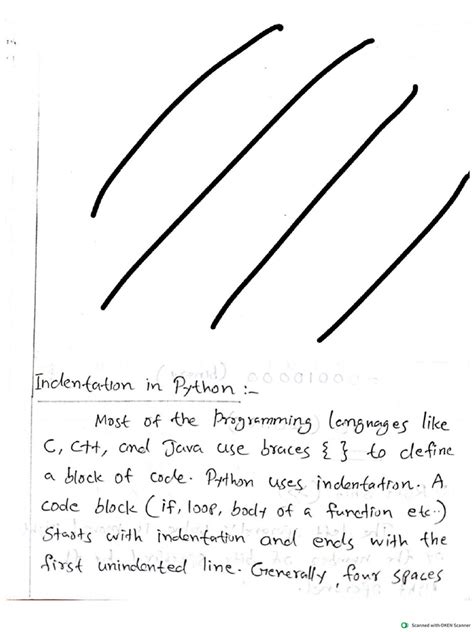 Indentation in Python :-
Most of the Programming languages like
C, C++, and Java use braces { } to define
a block of code. Python uses indentation. A
code block (if, loop, body of a function etc..)
Starts with indentation and ends with the
first unindented line. Generally, four spaces
Scanned with OKEN Scanner